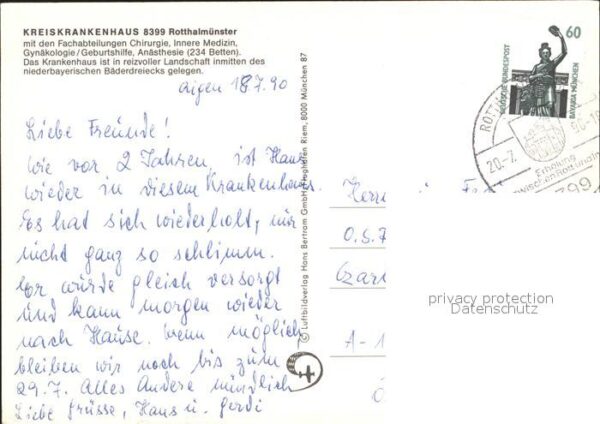 KREISKRANKENHAUS 8399 Rotthalmünster
mit den Fachabteilungen Chirurgie, Innere Medizin,
Gynäkologie/Geburtshilfe, Anästhesie (234 Betten).
Das Krankenhaus ist in reizvoller Landschaft inmitten des
niederbayerischen Bäderdreiecks gelegen.
Aigen 18.7.90
Liebe Freunde!
Wie vor 2 Jahren, ist Hans
wieder in diesem Krankenhaus.
Es hat sich wiederholt, nur
nicht ganz so schlimm.
Er wurde gleich versorgt
und kann morgen wieder
nach Hause. Wenn möglich
bleiben wir noch bis zum
29.7. Alles Andere mündlich
Liebe Grüsse, Hans u. Gerdi
© Luftbildverlag Hans Bertram GmbH Flughafen Riem, 8000 München 87
60
DEUTSCHE BUNDESPOST
BAVARIA MÜNCHEN
ROTT
20.-7.
90-10
Erholung
zwischen Rott u. Inn
Herrn
0.S.7
Czar
A-1
privacy protection
Datenschutz